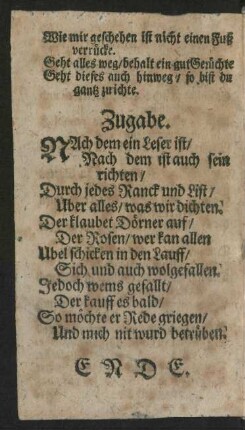 Wie mir geschehen ist nicht einen Fuß
verrücke.
Geht alles weg/ behalt ein gut Gerüchte
Geht dieses auch hinweg/ so bist du
gantz zu nichte.
Zugabe.
NAch dem ein Leser ist/
Nach dem ist auch sein
richten/
Durch jedes Ranck und List/
Uber alles/ was wir dichten.
Der klaubet Dörner auf/
Der Rosen/ wer kan allen
Ubel schicken in den Lauff/
Sich und auch wolgefallen.
Jedoch wems gefallt/
Der kauff es bald/
So möchte er Rede griegen/
Und mich nit wurd betrüben.
ENDE.